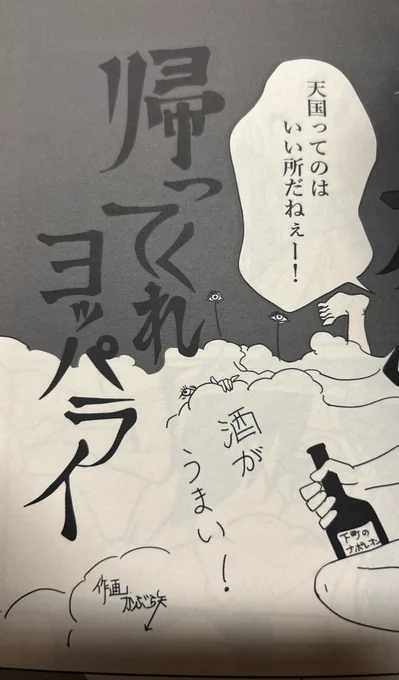 天国ってのは
いい所だねぇー!
帰ってくれ
ヨッパライ
酒が
うまい!
下町の
ナポレオン
作画
かぶら矢